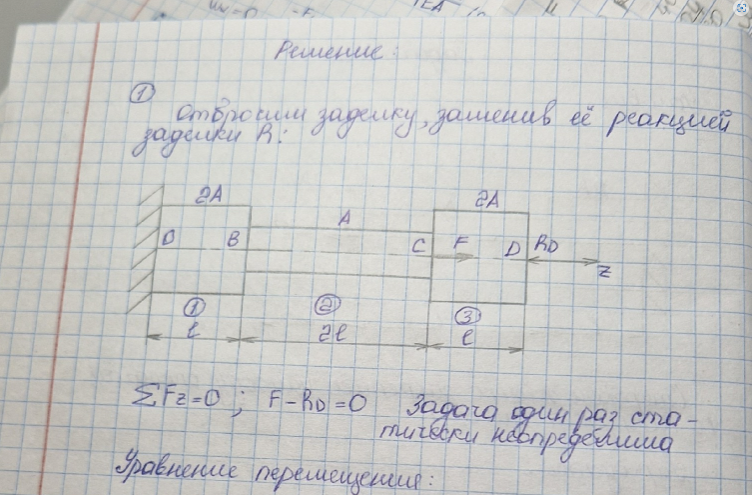 Решение:
①
отбросим заделку, заменив её реакцией
заделки R:
2A
A
2A
O
B
C
F
D
RD
z
①
②
③
l
2l
l
ΣFz=0; F-RD=0 Задача один раз ста-
тически неопределима
Уравнение перемещения: